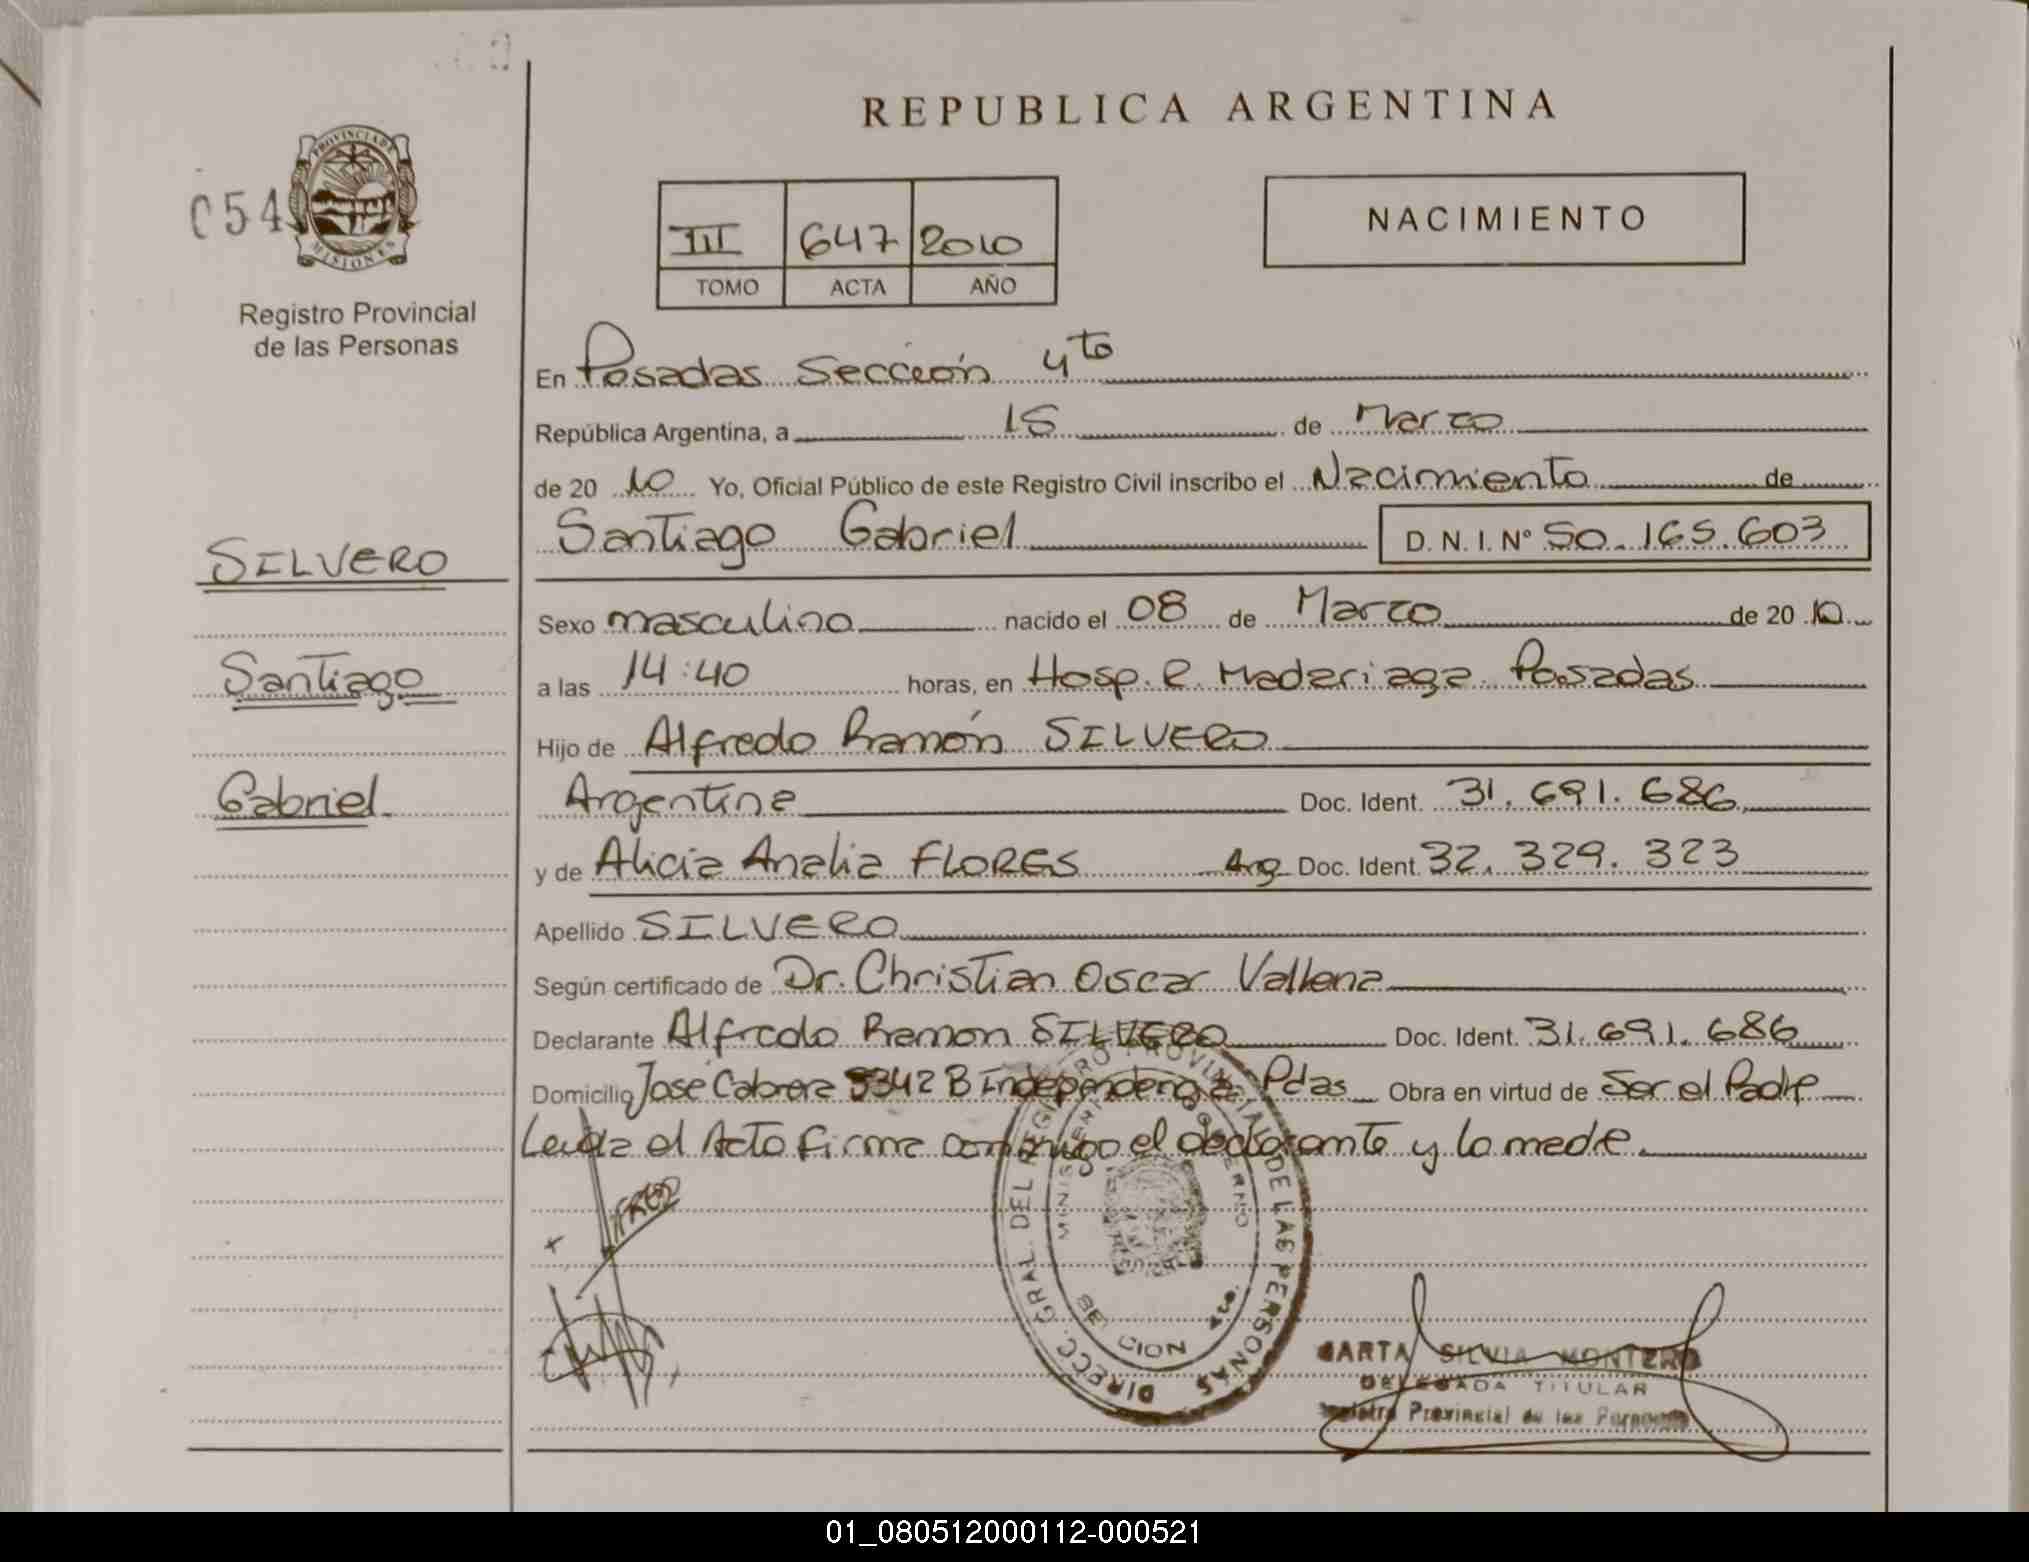 REPUBLICA ARGENTINA
054
PROVINCIA DE
MISIONES
Registro Provincial
de las Personas
III 647 2010
TOMO ACTA AÑO
NACIMIENTO
En Posadas Sección 4to
República Argentina, a 15 de Marzo
de 20 10 Yo, Oficial Público de este Registro Civil inscribo el Nacimiento de
Santiago Gabriel D. N. I. Nº 50.165.603
SILVERO
Santiago
Gabriel
Sexo masculino nacido el 08 de Marzo de 20 10
a las 14:40 horas, en Hosp. R. Madariaga Posadas
Hijo de Alfredo Ramón SILVERO
Argentina Doc. Ident. 31.691.686
y de Alicia Analia FLORES Arg Doc. Ident. 32.329.323
Apellido SILVERO
Según certificado de Dr. Christian Oscar
Declarante Alfredo Ramon SILVERO Doc. Ident. 31.691.686
Domicilio José Cabrera 5342 B Independencia Pdas Obra en virtud de Ser el Padre
Leida el Acto firma conmigo el declarante y la madre.
DIRECC. GRAL. DEL REGISTRO PROVINCIAL DE LAS PERSONAS
MINISTERIO DE GOBIERNO
SECCION 4to.
MARTA SILVIA MONTERO
DELEGADA TITULAR
Registro Provincial de las Personas
01_080512000112-000521